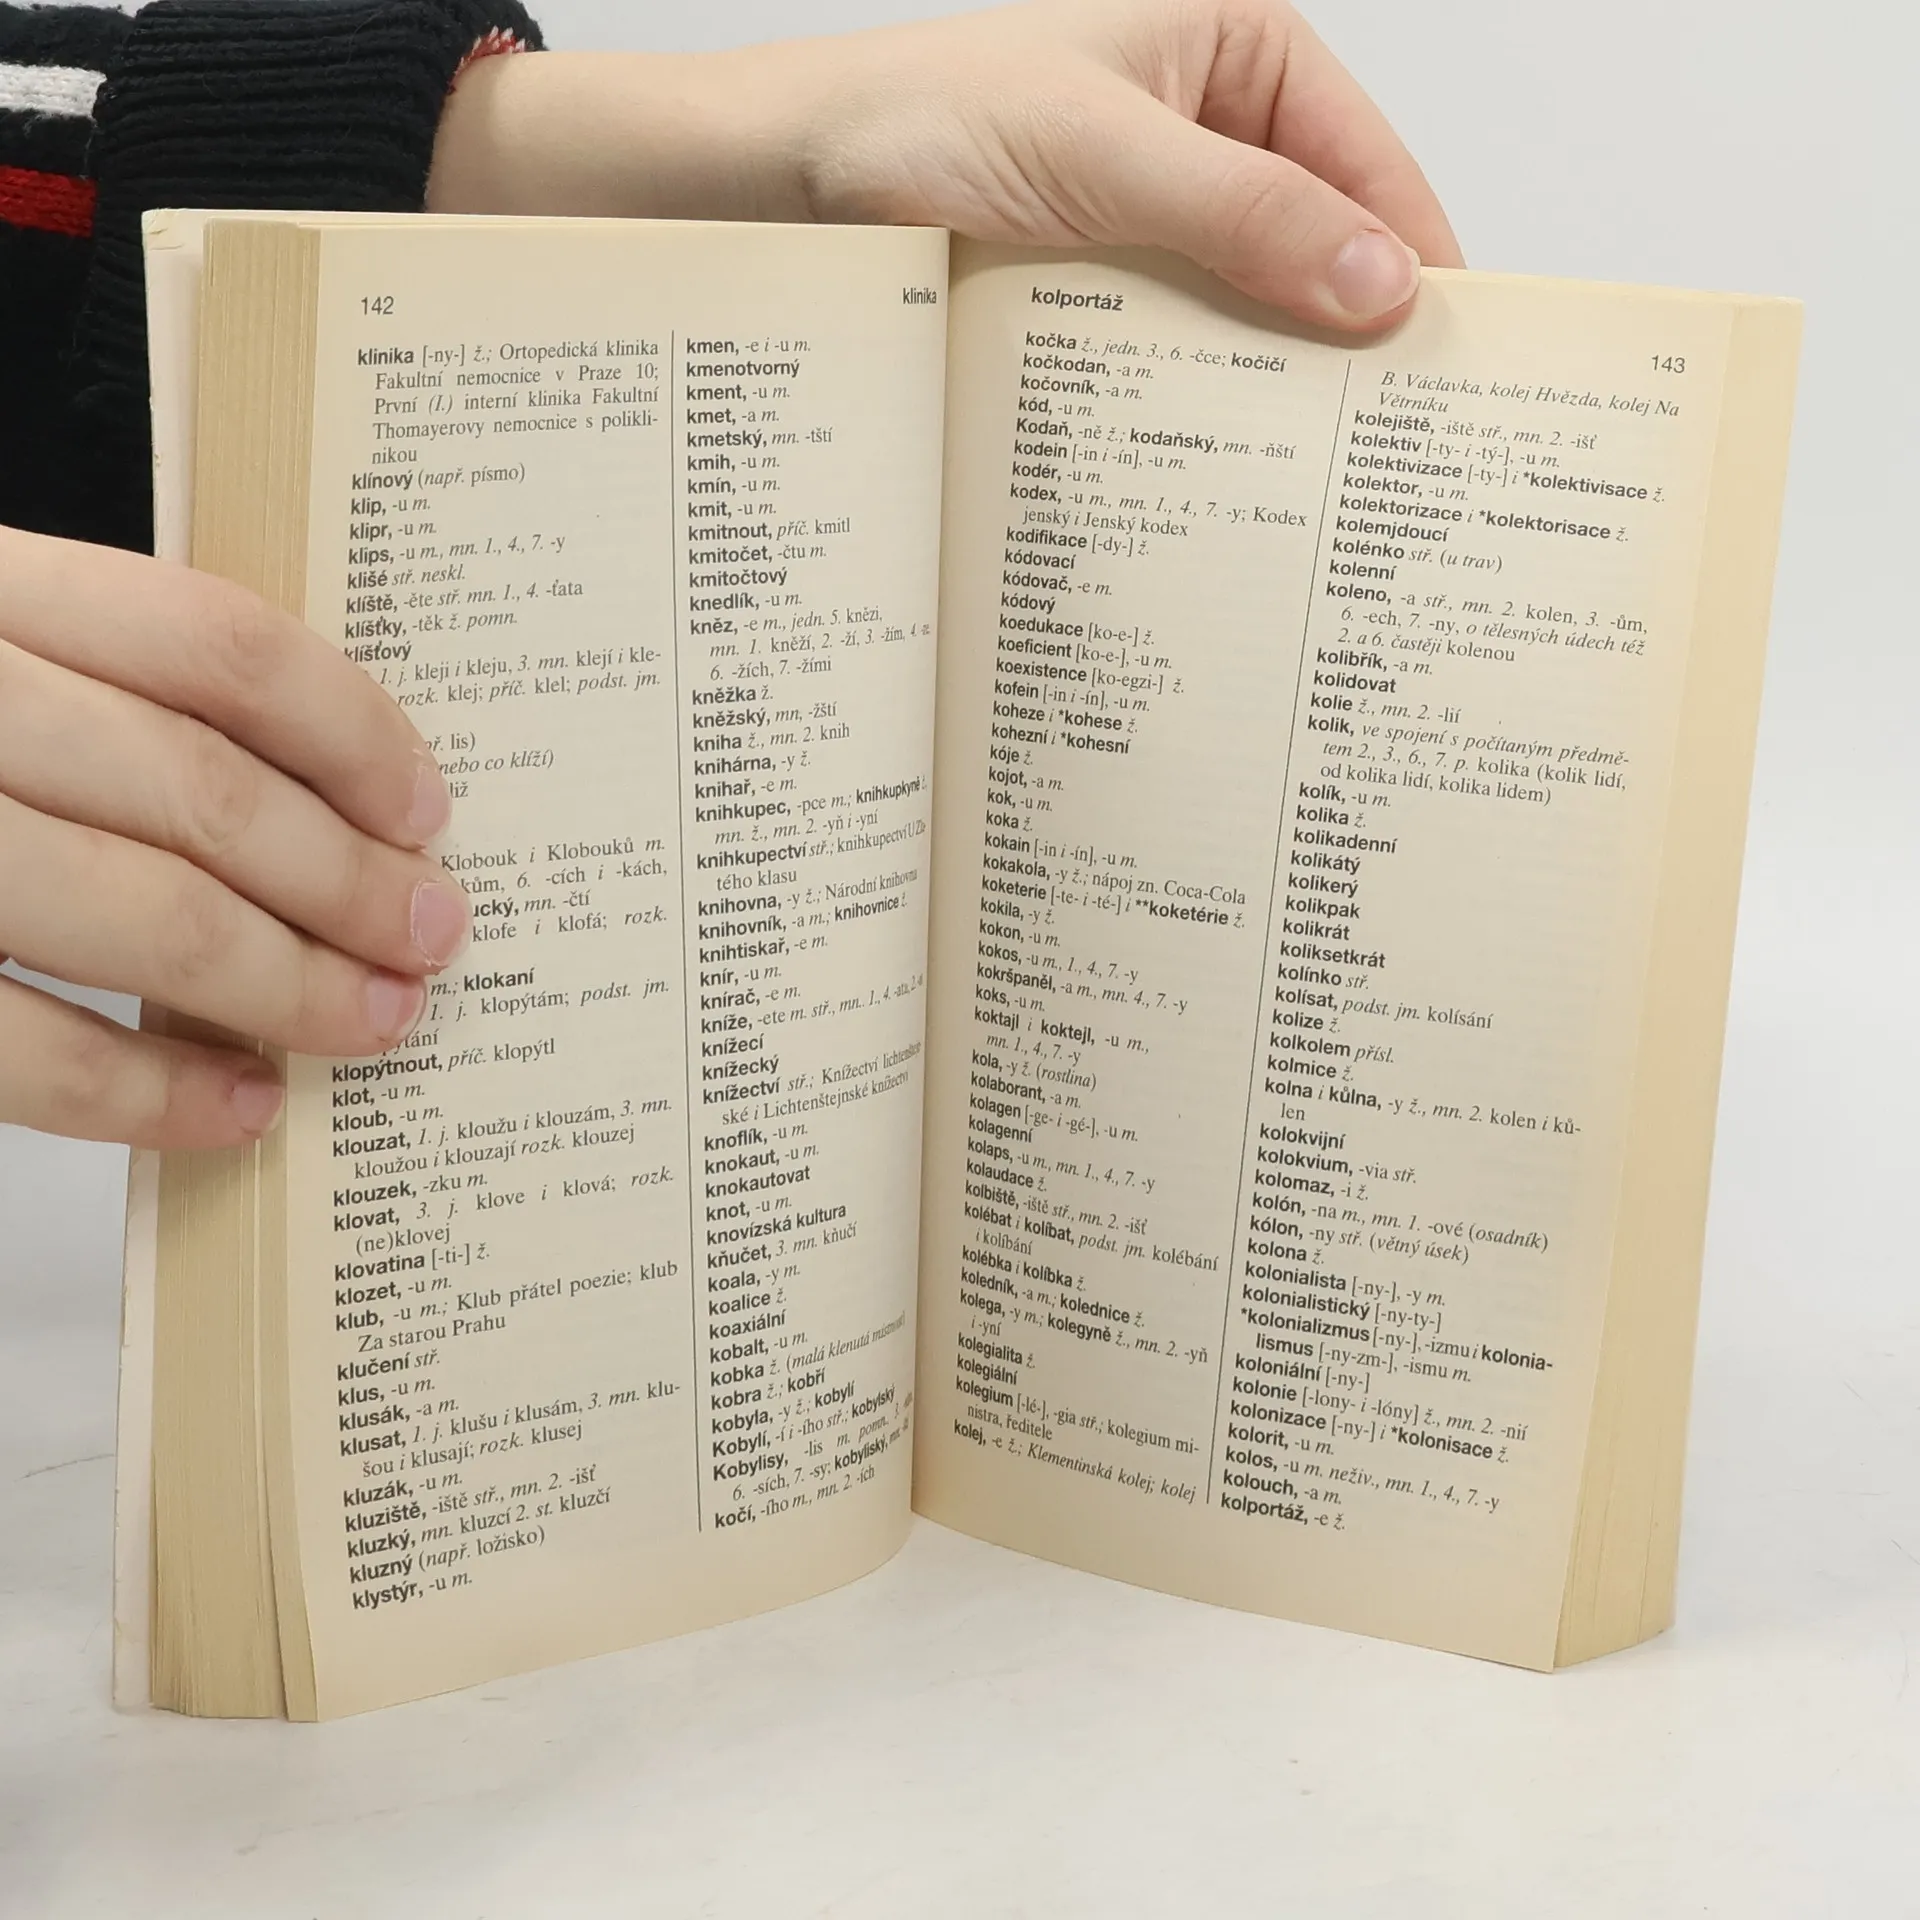 142
klinika
klinika [-ny-] ž.; Ortopedická klinika
Fakultní nemocnice v Praze 10;
První (I.) interní klinika Fakultní
Thomayerovy nemocnice s polikli-
nikou
klínový (např. písmo)
klip, -u m.
klipr, -u m.
klips, -u m., mn. 1., 4., 7. -y
klišé stř. neskl.
klíště, -ěte stř. mn. 1., 4. -ťata
klíšťky, -těk ž. pomn.
klíšťový
1. j. kleji i kleju, 3. mn. klejí i kle-
rozk. klej; příč. klel; podst. jm.
lis)
nebo co klíží)
Klobouk i Klobouků m.
6. -cích i -kách,
mn. -čtí
klofe i klofá; rozk.
m.; klokaní
1. j. klopýtám; podst. jm.
klopýtnout, příč. klopýtl
klot, -u m.
kloub, -u m.
klouzat, 1. j. kloužu i klouzám, 3. mn.
kloužou i klouzají rozk. klouzej
klouzek, -zku m.
klovat, 3. j. klove i klová; rozk.
(ne)klovej
klovatina [-ti-] ž.
klozet, -u m.
klub, -u m.; Klub přátel poezie; klub
Za starou Prahu
klučení stř.
klus, -u m.
klusák, -a m.
klusat, 1. j. klušu i klusám, 3. mn. klu-
šou i klusají; rozk. klusej
kluzák, -u m.
kluziště, -iště stř., mn. 2. -išť
kluzký, mn. kluzcí 2. st. kluzčí
kluzný (např. ložisko)
klystýr, -u m.
kmen, -e i -u m.
kmenotvorný
kment, -u m.
kmet, -a m.
kmetský, mn. -tští
kmih, -u m.
kmín, -u m.
kmit, -u m.
kmitnout, příč. kmitl
kmitočet, -čtu m.
kmitočtový
knedlík, -u m.
kněz, -e m., jedn. 5. knězi,
mn. 1. kněží, 2. -ží, 3. -žím, 4. -ze
6. -žích, 7. -žími
kněžka ž.
kněžský, mn, -žští
kniha ž., mn. 2. knih
knihárna, -y ž.
knihař, -e m.
knihkupec, -pce m.; knihkupkyně ž.,
mn. ž., mn. 2. -yň i -yní
knihkupectví stř.; knihkupectví U Zla-
tého klasu
knihovna, -y ž.; Národní knihovna
knihovník, -a m.; knihovnice ž.
knihtiskař, -e m.
knír, -u m.
knírač, -e m.
kníže, -ete m. stř., mn.. 1., 4. -ata, 2.
knížecí
knížecký
knížectví stř.; Knížectví lichtenštejn-
ské i Lichtenštejnské knížectví
knoflík, -u m.
knokaut, -u m.
knokautovat
knot, -u m.
knovízská kultura
kňučet, 3. mn. kňučí
koala, -y m.
koalice ž.
koaxiální
kobalt, -u m.
kobka ž. (malá klenutá místnost)
kobra ž.; kobří
kobyla, -y ž.; kobylí
Kobylí, -í i -ího stř.; kobylský
Kobylisy, -lis m. pomn.. 3.
6. -sích, 7. -sy; kobyliský, mn.
kočí, -ího m., mn. 2. -ích
kolportáž
143
kočka ž., jedn. 3., 6. -čce; kočičí
kočkodan, -a m.
kočovník, -a m.
kód, -u m.
Kodaň, -ně ž.; kodaňský, mn. -ňští
kodein [-in i -ín], -u m.
kodér, -u m.
kodex, -u m., mn. 1., 4., 7. -y; Kodex
jenský i Jenský kodex
kodifikace [-dy-] ž.
kódovací
kódovač, -e m.
kódový
koedukace [ko-e-] ž.
koeficient [ko-e-], -u m.
koexistence [ko-egzi-] ž.
kofein [-in i -ín], -u m.
koheze i *kohese ž.
kohezní i *kohesní
kóje ž.
kojot, -a m.
kok, -u m.
koka ž.
kokain [-in i -ín], -u m.
kokakola, -y ž.; nápoj zn. Coca-Cola
koketerie [-te- i -té-] i **koketérie ž.
kokila, -y ž.
kokon, -u m.
kokos, -u m., 1., 4., 7. -y
kokršpaněl, -a m., mn. 4., 7. -y
koks, -u m.
koktajl i koktejl, -u m.,
mn. 1., 4., 7. -y
kola, -y ž. (rostlina)
kolaborant, -a m.
kolagen [-ge- i -gé-], -u m.
kolagenní
kolaps, -u m., mn. 1., 4., 7. -y
kolaudace ž.
kolbiště, -iště stř., mn. 2. -išť
kolébat i kolíbat, podst. jm. kolébání
i kolíbání
kolébka i kolíbka ž.
koledník, -a m.; kolednice ž.
kolega, -y m.; kolegyně ž., mn. 2. -yň
i -yní
kolegialita ž.
kolegiální
kolegium [-lé-], -gia stř.; kolegium mi-
nistra, ředitele
kolej, -e ž.; Klementinská kolej; kolej
B. Václavka, kolej Hvězda, kolej Na
Větrníku
kolejiště, -iště stř., mn. 2. -išť
kolektiv [-ty- i -tý-], -u m.
kolektivizace [-ty-] i *kolektivisace ž.
kolektor, -u m.
kolektorizace i *kolektorisace ž.
kolemjdoucí
kolénko stř. (u trav)
kolenní
koleno, -a stř., mn. 2. kolen, 3. -ům,
6. -ech, 7. -ny, o tělesných údech též
2. a 6. častěji kolenou
kolibřík, -a m.
kolidovat
kolie ž., mn. 2. -lií
kolik, ve spojení s počítaným předmě-
tem 2., 3., 6., 7. p. kolika (kolik lidí,
od kolika lidí, kolika lidem)
kolík, -u m.
kolika ž.
kolikadenní
kolikátý
kolikerý
kolikpak
kolikrát
koliksetkrát
kolínko stř.
kolísat, podst. jm. kolísání
kolize ž.
kolkolem přísl.
kolmice ž.
kolna i kůlna, -y ž., mn. 2. kolen i ků-
len
kolokvijní
kolokvium, -via stř.
kolomaz, -i ž.
kolón, -na m., mn. 1. -ové (osadník)
kólon, -ny stř. (větný úsek)
kolona ž.
kolonialista [-ny-], -y m.
kolonialistický [-ny-ty-]
*kolonializmus [-ny-], -izmu i kolonia-
lismus [-ny-zm-], -ismu m.
koloniální [-ny-]
kolonie [-lony- i -lóny] ž., mn. 2. -nií
kolonizace [-ny-] i *kolonisace ž.
kolorit, -u m.
kolos, -u m. neživ., mn. 1., 4., 7. -y
kolouch, -a m.
kolportáž, -e ž.